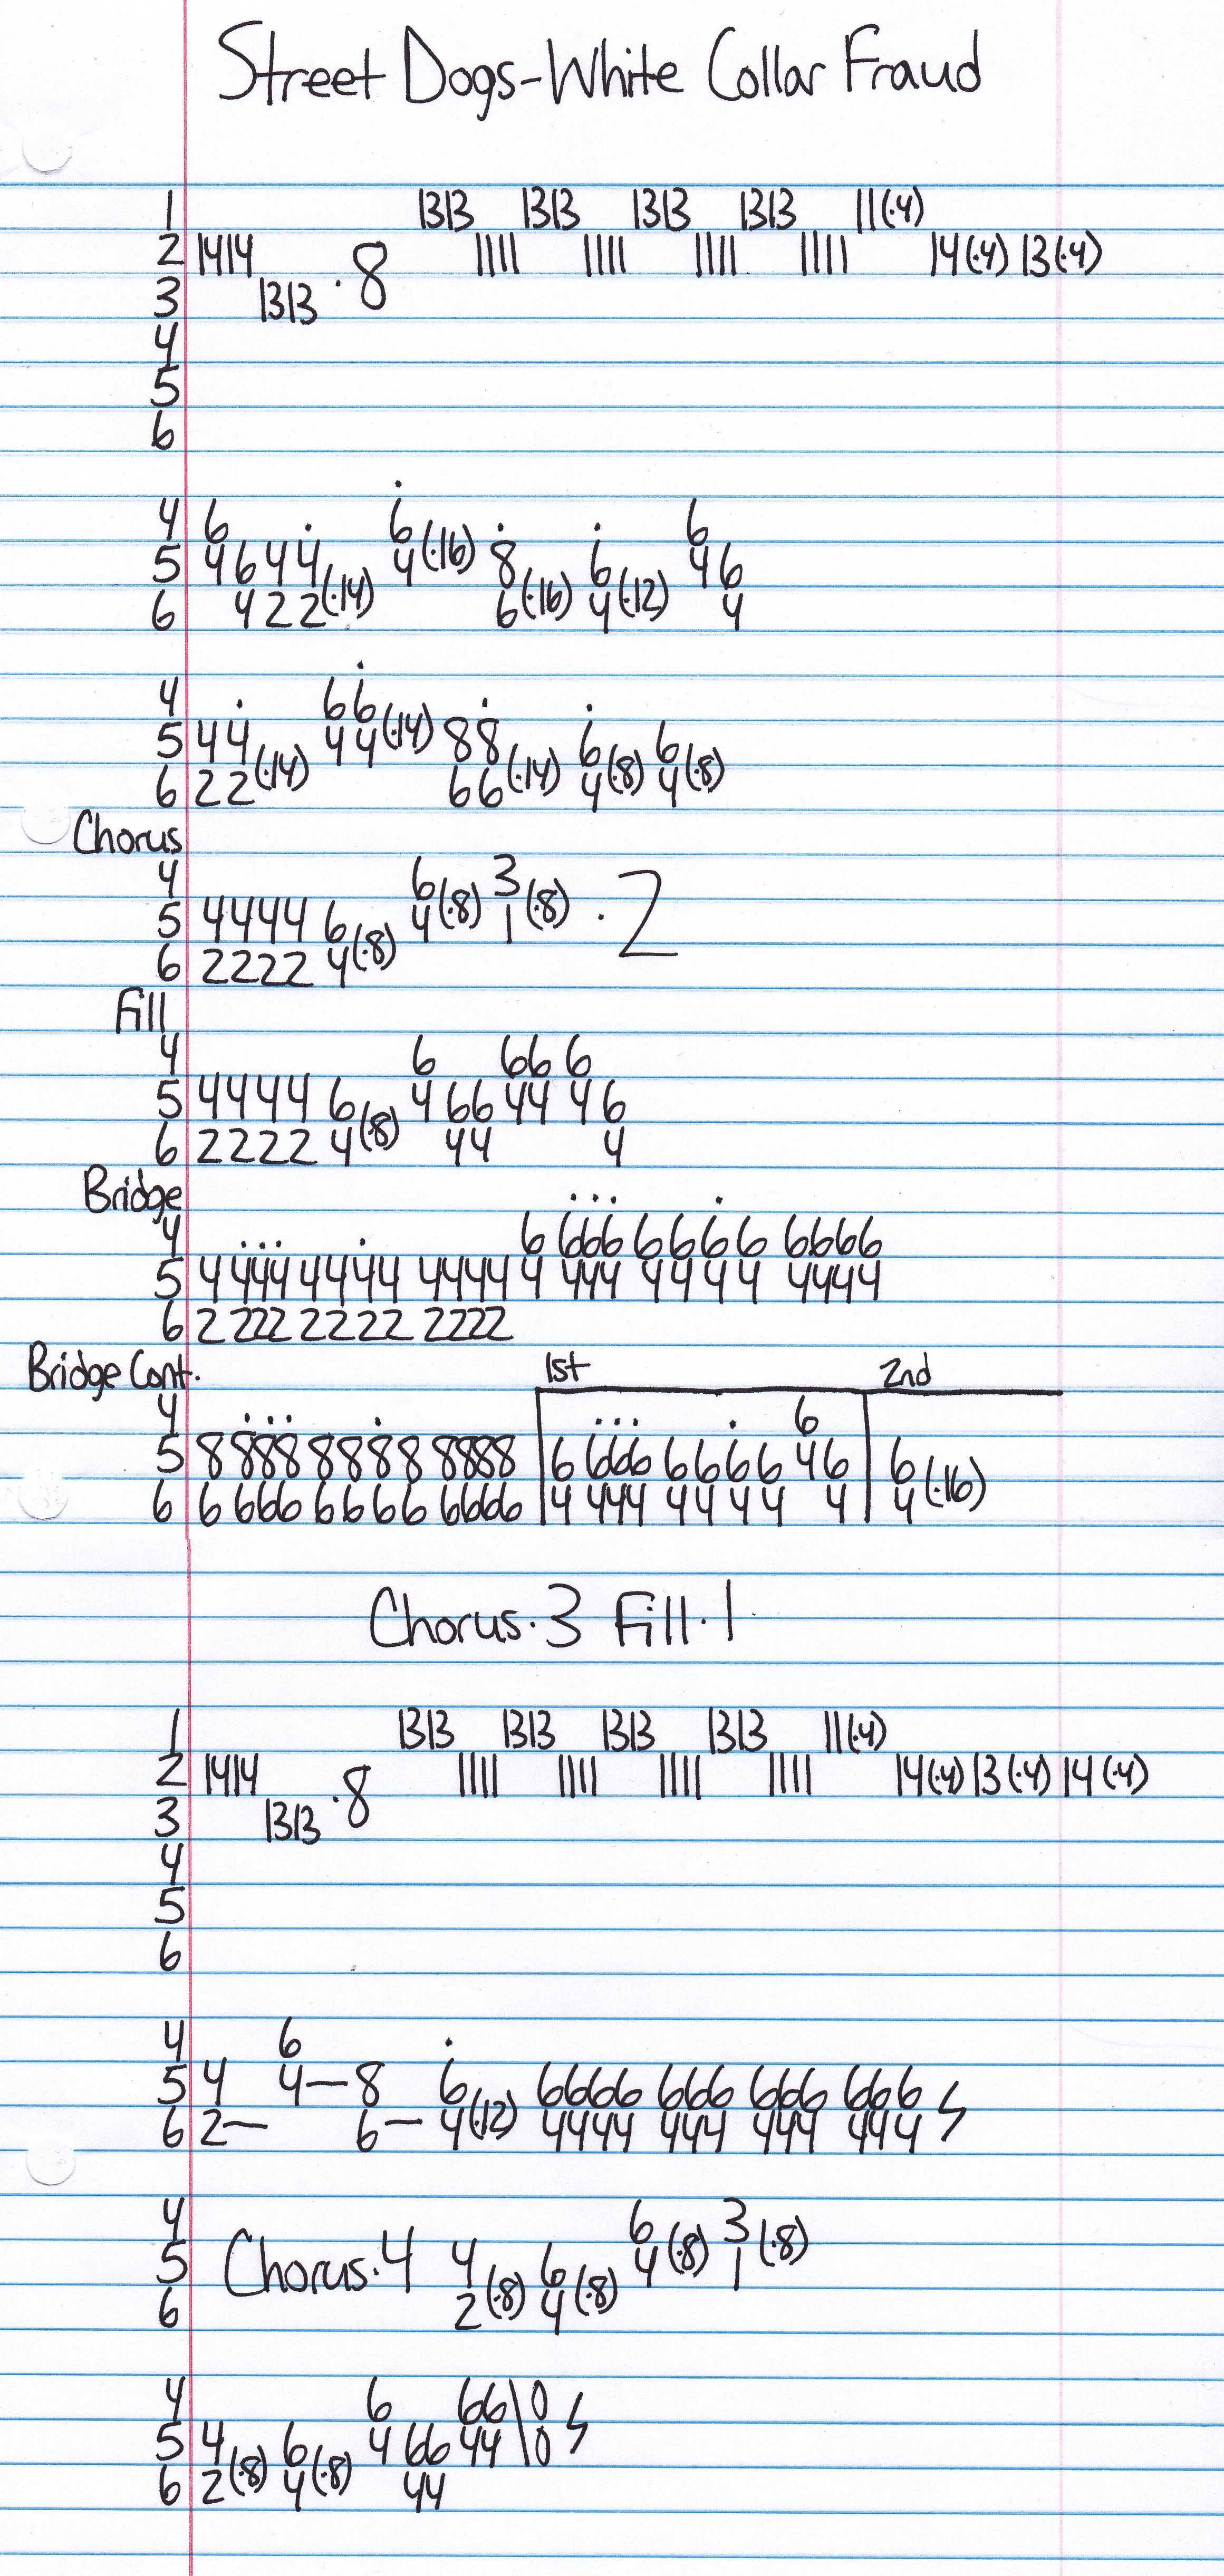 Street Dogs-White Collar Fraud
1 1313 1313 1313 1313 11(·4)
2 1414 · 8 1111 1111 1111 1111 14(·4) 13(·4)
3 1313
4
5
6
4 6 6 6
5 4 6 4 4 4(·16) 8 6 4 6
6 4 2 2(·14) 6(·16) 4(·12) 4
4 6 6
5 4 4 4 4(·14) 8 8 6 6
6 2 2(·14) 6 6(·14) 4(·8) 4(·8)
Chorus
4 6 3
5 4 4 4 4 6 4(·8) 1(·8) · 2
6 2 2 2 2 4(·8)
Fill
4 6 66 6
5 4 4 4 4 6 4 66 44 4 6
6 2 2 2 2 4(·8) 44 4
Bridge
4 6 666 6666 6666
5 4 444 4444 4444 4 444 4444 4444
6 2 222 2222 2222
Bridge Cont. 1st 2nd
4 6
5 8 888 8888 8888 6 666 6666 46 6
6 6 666 6666 6666 4 444 4444 4 4(·16)
Chorus·3 Fill·1
1 1313 1313 1313 1313 11(·4)
2 1414 · 8 1111 1111 1111 1111 14(·4) 13(·4) 14(·4)
3 1313
4
5
6
4 6
5 4 4— 8 6 6666 666 666 666
6 2— 6— 4(·12) 4444 444 444 444
4 6 3
5 Chorus·4 4 6 4(·8) 1(·8)
6 2(·8) 4(·8)
4 6 66\0
5 4 6 4 66 44\0
6 2(·8) 4(·8) 44